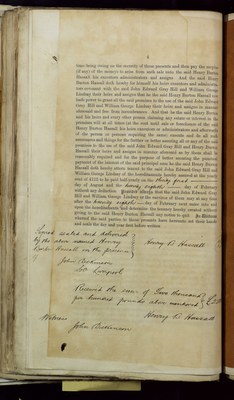 time being owing on the security of these presents and then pay the surplus
(if any) of the moneys to arise from such sale unto the said Henry Burton
Hassall his executors administrators and assigns And that the said Henry
Burton Hassall doth hereby for himself his heirs executors and administra-
tors covenant with the said John Edward Gray Hill and William George
Lindsay their heirs and assigns that he the said Henry Burton Hassall has
power to grant all the said premises to the use of the said John Edward
Gray Hill and William George Lindsay their heirs and assigns in manner
aforesaid and free from incumbrances And that he the said Henry Burton
and his heirs and every other person claiming any estate or interest in the
premises will at all times at the cost until sale or foreclosure of the said
Henry Burton Hassall his heirs executors or administrators and afterwards
of the person or persons requiring the same execute and do all such
assurances and things for the further or better assuring all or any of the said
premises to the use of the said John Edward Gray Hill and William George
Lindsay their heirs and assigns in manner aforesaid as by them shall be
reasonably required And for the purpose of better securing the punctual
payment of the interest of the said principal sum he the said Henry Burton
Hassall doth hereby attorn tenant to the said John Edward Gray Hill and
William George Lindsay of the hereditaments hereby granted at the yearly
rent of £112 to be paid half-yearly on the
day of August and the day of February
without any deduction Provided always that the said John Edward
Gray Hill and William George Lindsay or the survivor of them may at any time
after the day of February next enter into and
upon the hereditaments and determine the tenancy hereby created without
giving to the said Henry Burton Hassall any notice to quit In Witness
whereof the said parties to these presents have hereunto set their hands
and seals the day and year first before written
Signed sealed and delivered
by the above named Henry
Burton Hassall in the presence
of
John
Liverpool
Henry B Hassall
Received the sum of Two thousand
hundred pounds above mentioned
Henry B Hassall
Witness
John